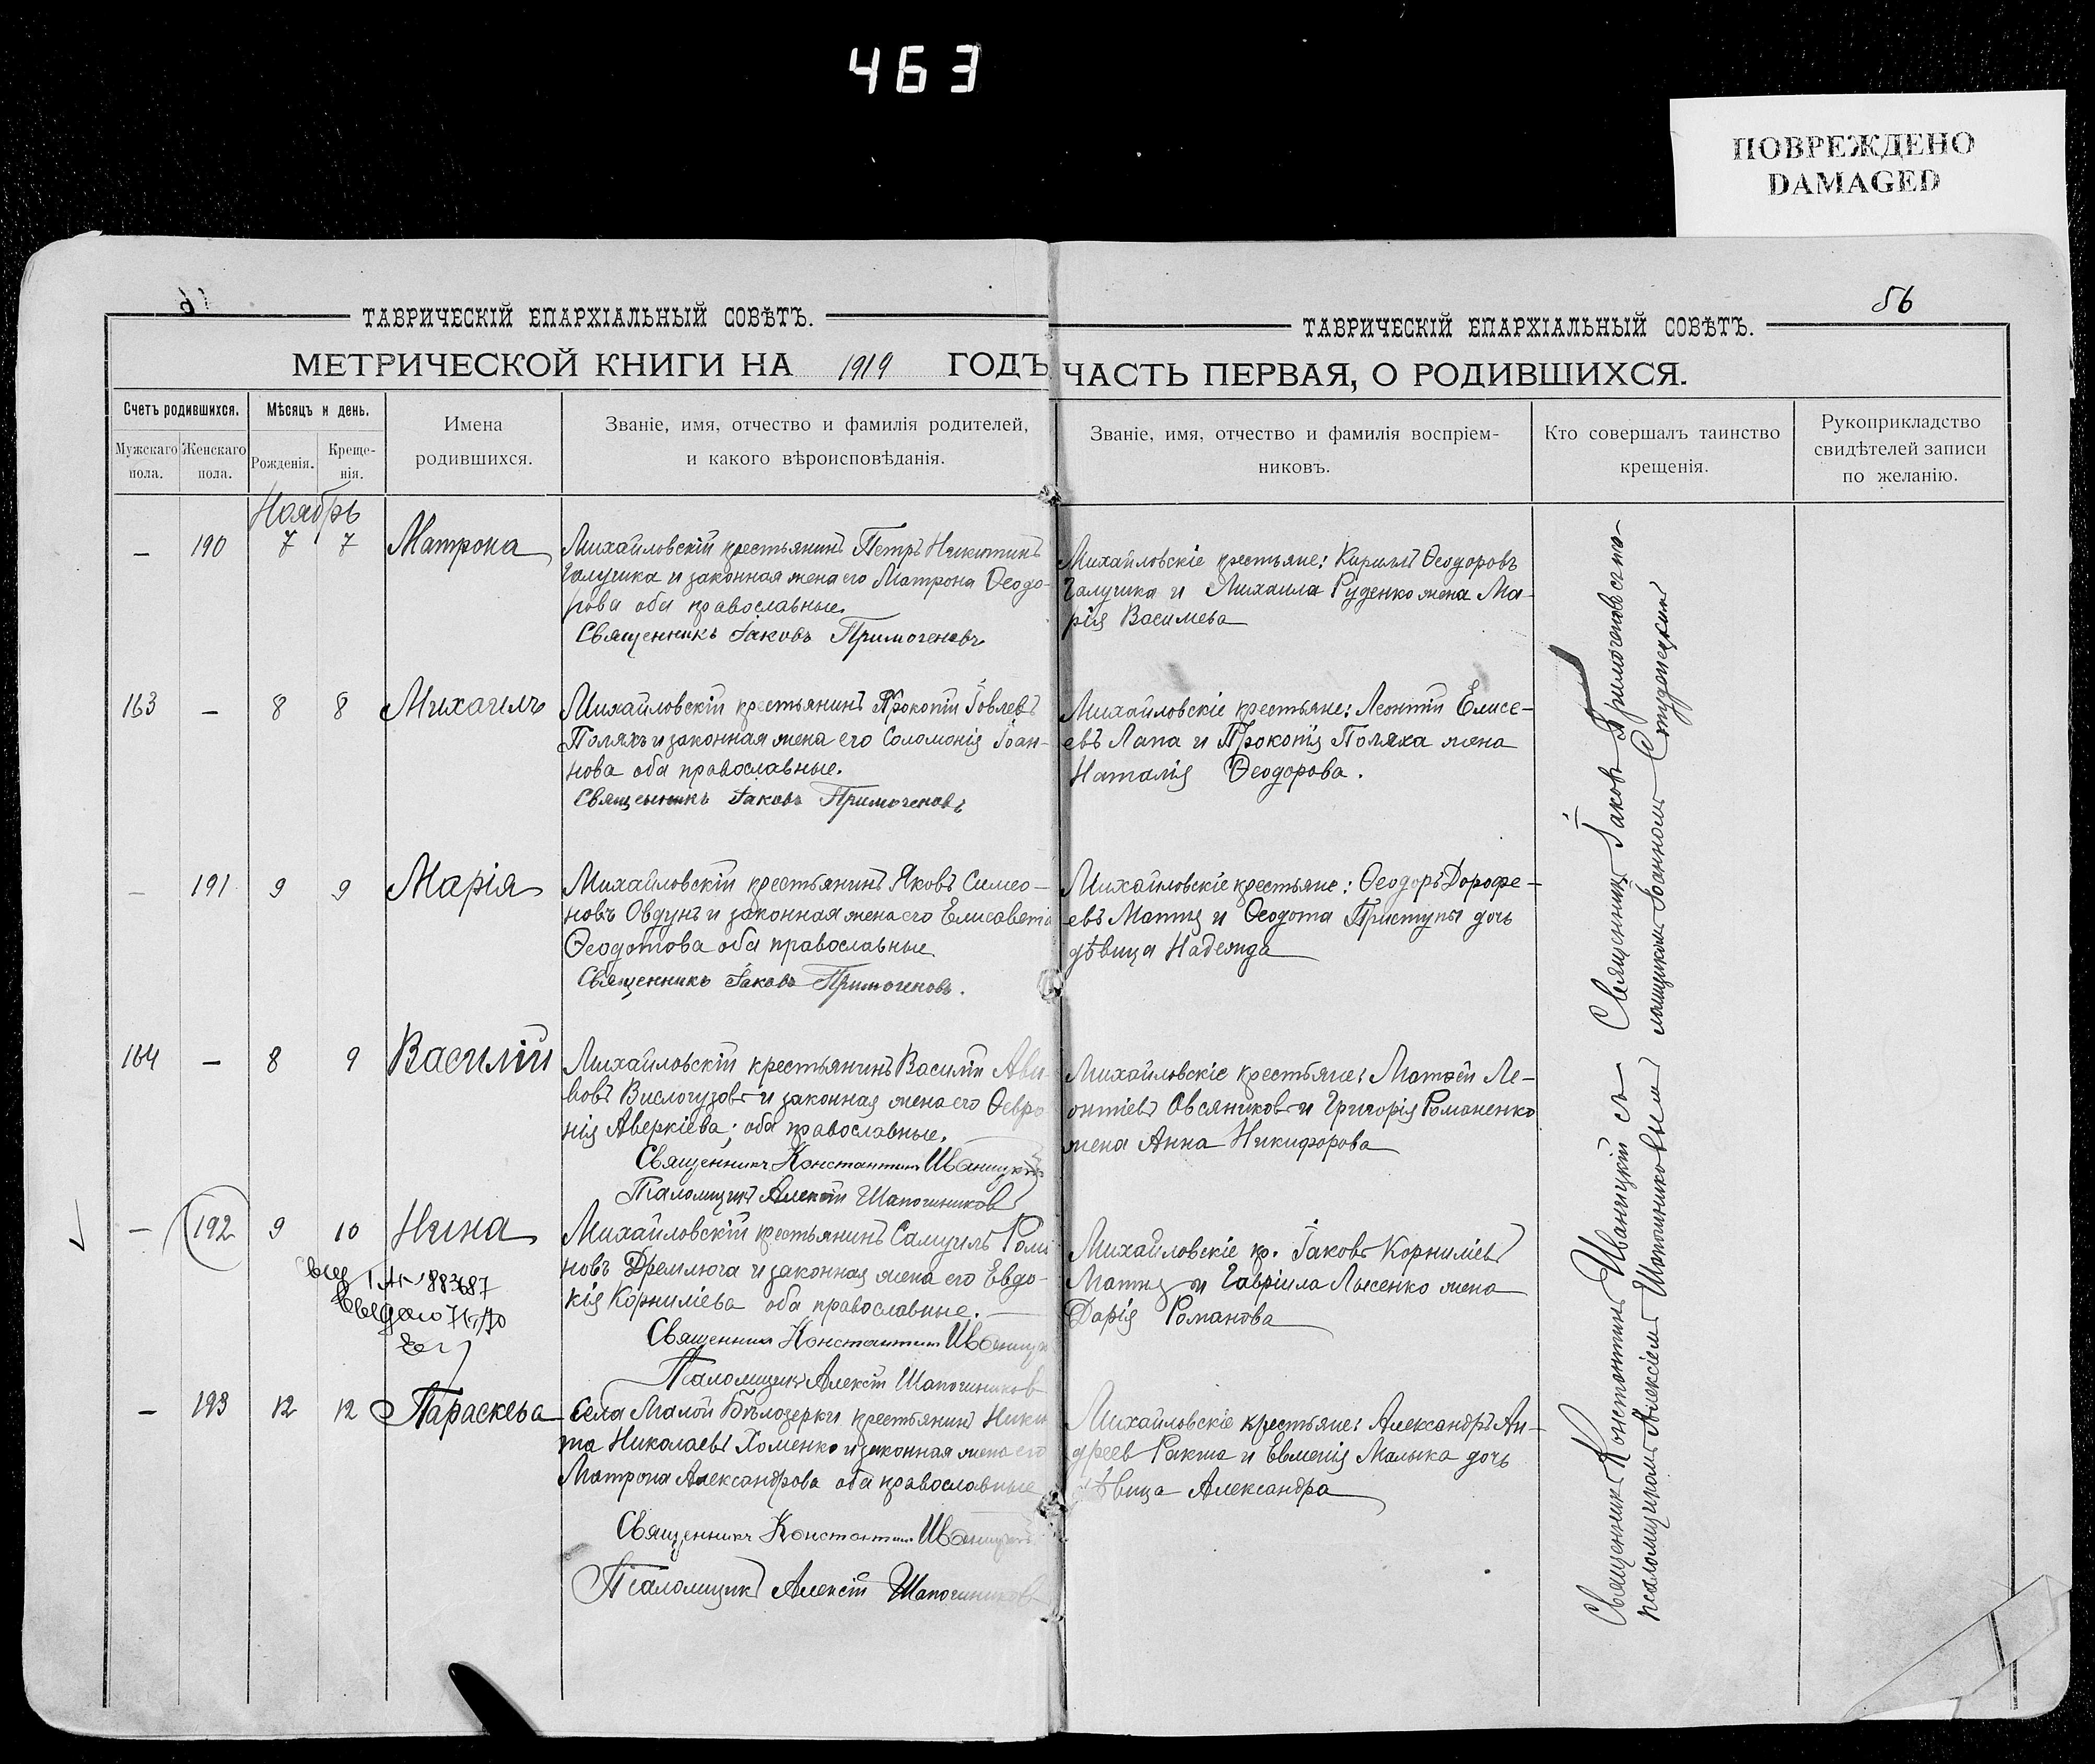 463
ПОВРЕЖДЕНО
DAMAGED
56
ТАВРИЧЕСКІЙ ЕПАРХІАЛЬНЫЙ СОВѢТЪ.
МЕТРИЧЕСКОЙ КНИГИ НА 1919 ГОДЪ
Счетъ родившихся.
Мѣсяцъ и день.
Мужскаго пола.
Женскаго пола.
Рожденія.
Креще-
нія.
Имена
родившихся.
Званіе, имя, отчество и фамилія родителей,
и какого вѣроисповѣданія.
ТАВРИЧЕСКІЙ ЕПАРХІАЛЬНЫЙ СОВѢТЪ.
ЧАСТЬ ПЕРВАЯ, О РОДИВШИХСЯ.
Званіе, имя, отчество и фамилія воспріем-
никовъ.
Кто совершалъ таинство
крещенія.
Рукоприкладство
свидѣтелей записи
по желанію.
Ноябрь
— 190 7 7 Матрона
Михайловскій крестьянинъ Петръ Никитинъ
Галушка и законная жена его Матрона Ѳеодо-
рова оба православные.
Священникъ Іаковъ Примогеновъ
Михайловскіе крестьяне: Кириллъ Ѳеодоровъ
Галушка и Михаила Руденко жена Ма-
рія Васильева
163 — 8 8 Михаилъ
Михайловскій крестьянинъ Прокопій Іовлевъ
Поляхъ и законная жена его Соломонія Іоан-
нова оба православные.
Священникъ Іаковъ Примогеновъ
Михайловскіе крестьяне: Леонтій Елисе-
евъ Лапа и Прокопія Поляха жена
Наталія Ѳеодорова.
— 191 9 9 Марія
Михайловскій крестьянинъ Яковъ Симео-
новъ Овдунъ и законная жена его Елисавета
Ѳеодотова оба православные
Священникъ Іаковъ Примогеновъ.
Михайловскіе крестьяне: Ѳеодоръ Дорофе-
евъ Матяш и Ѳеодота Приступы дочь
дѣвица Надежда
164 — 8 9 Василій
Михайловскій крестьянинъ Василій
Вислогузовъ и законная жена его Ѳевро
нія Аверкіева; оба православные.
Священникъ Константинъ Иваницкій
Псаломщикъ Алексій Шапошниковъ
Михайловскіе крестьяне: Матѳей Ле-
онтіевъ Овсяниковъ и Григорія Романенко
жена Анна Никифорова
— 192 9 10 Нина
Михайловскій крестьянинъ Самуилъ Рома
новъ Дремлюга и законная жена его Евдо-
кія Корниліева оба православные.
Священникъ Константинъ Иваницк
Псаломщикъ Алексій Шапошников
Михайловскіе кр. Іаковъ Корниліевъ
Матяш и Гавріила Лысенко жена
Дарія Романова
883687
— 193 12 12 Параскева
Села Малой Бѣлозерки крестьянинъ Ники
та Николаевъ Хоменко и законная жена его
Матрона Александрова оба православные
Священникъ Константинъ Иваницкій
Псаломщикъ Алексій Шапошниковъ
Михайловскіе крестьяне: Александръ Ан-
дреевъ Ракша и Евменія Малыка дочь
дѣвица Александра
Священникъ Іаковъ Примогеновъ съ пса-
ломщикомъ Іоанномъ Студенецкимъ
Священникъ Константинъ Иваницкій съ
псаломщикомъ Алексіемъ Шапошниковымъ